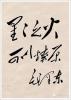 星星之火
可以燎原
毛泽东